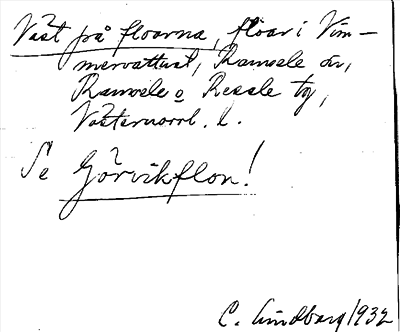 Väst på floarna, floar i Vim-
mervattnet, Ramsele sn,
Ramsele o Resele tg,
Västernorrl. l.
Se Görvikflon!
C. Lindberg 1932